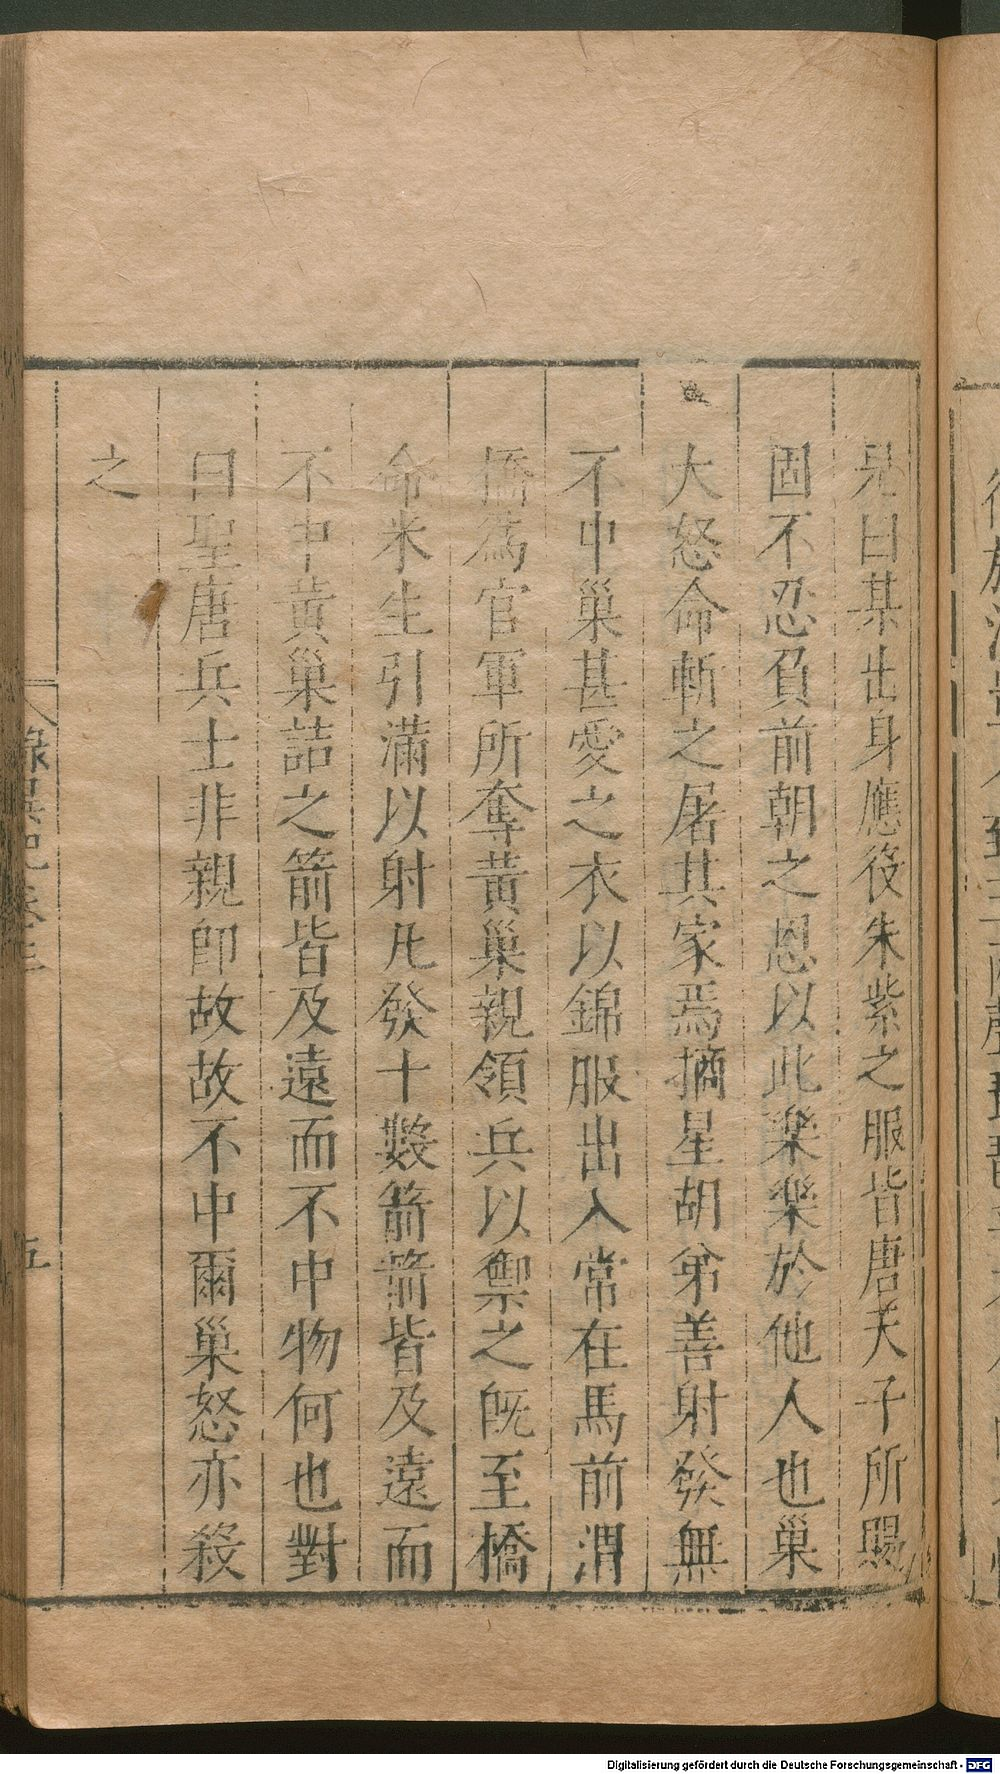 兄曰某出身應役朱紫之服皆唐天子所賜
固不忍負前朝之恩以此樂樂於他人也巢
大怒命斬之屠其家焉摘星胡弟善射發無
不中巢甚愛之衣以錦服出入常在馬前渭
橋爲官軍所奪黃巢親領兵以禦之旣至橋
命米生引滿以射凡發十數箭箭皆及遠而
不中黃巢詰之箭皆及遠而不中物何也對
曰聖唐兵士非親卽故故不中爾巢怒亦殺
之
錄異記卷三
五
Digitalisierung gefördert durch die Deutsche Forschungsgemeinschaft - DFG